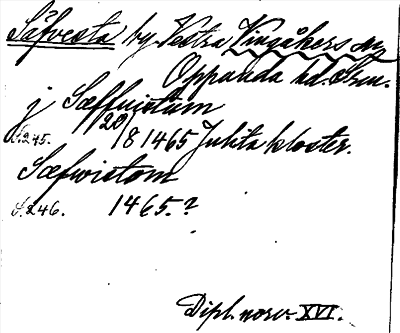 Säfvesta by Västra Vingåkers sn
Oppunda hd. Srm.
j Sæffuistum
s. 245. 20/8 1465 Julita kloster.
Sæfwistom
s. 246. 1465.?
Dipl. norv. XVI.